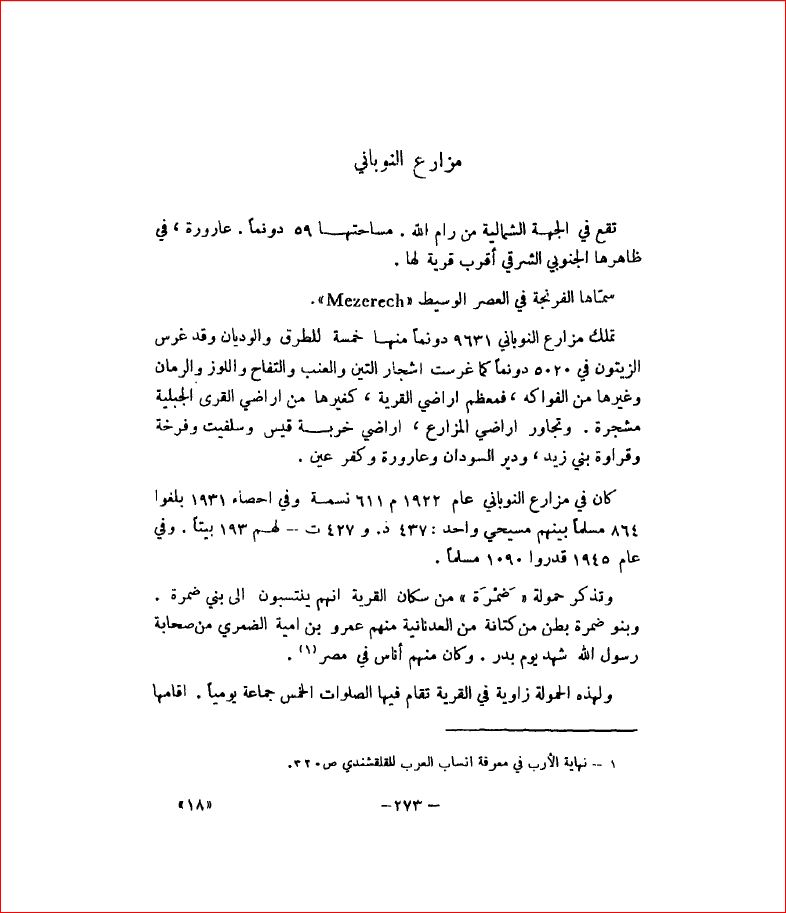 مزارع النوباني
تقع في الجهة الشمالية من رام الله . مساحتها ٥٩ دونماً . عارورة ، في
ظاهرها الجنوبي الشرقي أقرب قرية لها .
سمّاها الفرنجة في العصر الوسيط «Mezerech».
تملك مزارع النوباني ٩٦٣١ دونماً منها خمسة للطرق والوديان وقد غرس
الزيتون في ٥٠٢٠ دونماً كما غرست اشجار التين والعنب والتفاح واللوز والرمان
وغيرها من الفواكه ، فمعظم اراضي القرية ، كغيرها من اراضي القرى الجبلية
مشجرة . وتجاور اراضي المزارع ، اراضي خربة قيس وسلفيت وفرخة
وقراوة بني زيد ، ودير السودان وعارورة وكفر عين .
كان في مزارع النوباني عام ١٩٢٢ م ٦١١ نسمة وفي احصاء ١٩٣١ بلغوا
٨٦٤ مسلماً بينهم مسيحي واحد : ٤٣٧ ذ. و ٤٢٧ ث -- لهم ١٩٣ بيتاً . وفي
عام ١٩٤٥ قدروا ١٠٩٠ مسلماً .
وتذكر حمولة « ضَمْرَة » من سكان القرية انهم ينتسبون الى بني ضمرة .
وبنو ضمرة بطن من كنانة من العدنانية منهم عمرو بن امية الضمري من صحابة
رسول الله شهد يوم بدر . وكان منهم أناس في مصر (١) .
ولهذه الحمولة زاوية في القرية تقام فيها الصلوات الخمس جماعة يومياً . اقامها
١ -- نهاية الأرب في معوفة انساب العرب للقلقشندي ص٣٢٠.
– ٢٧٣ –
«١٨»